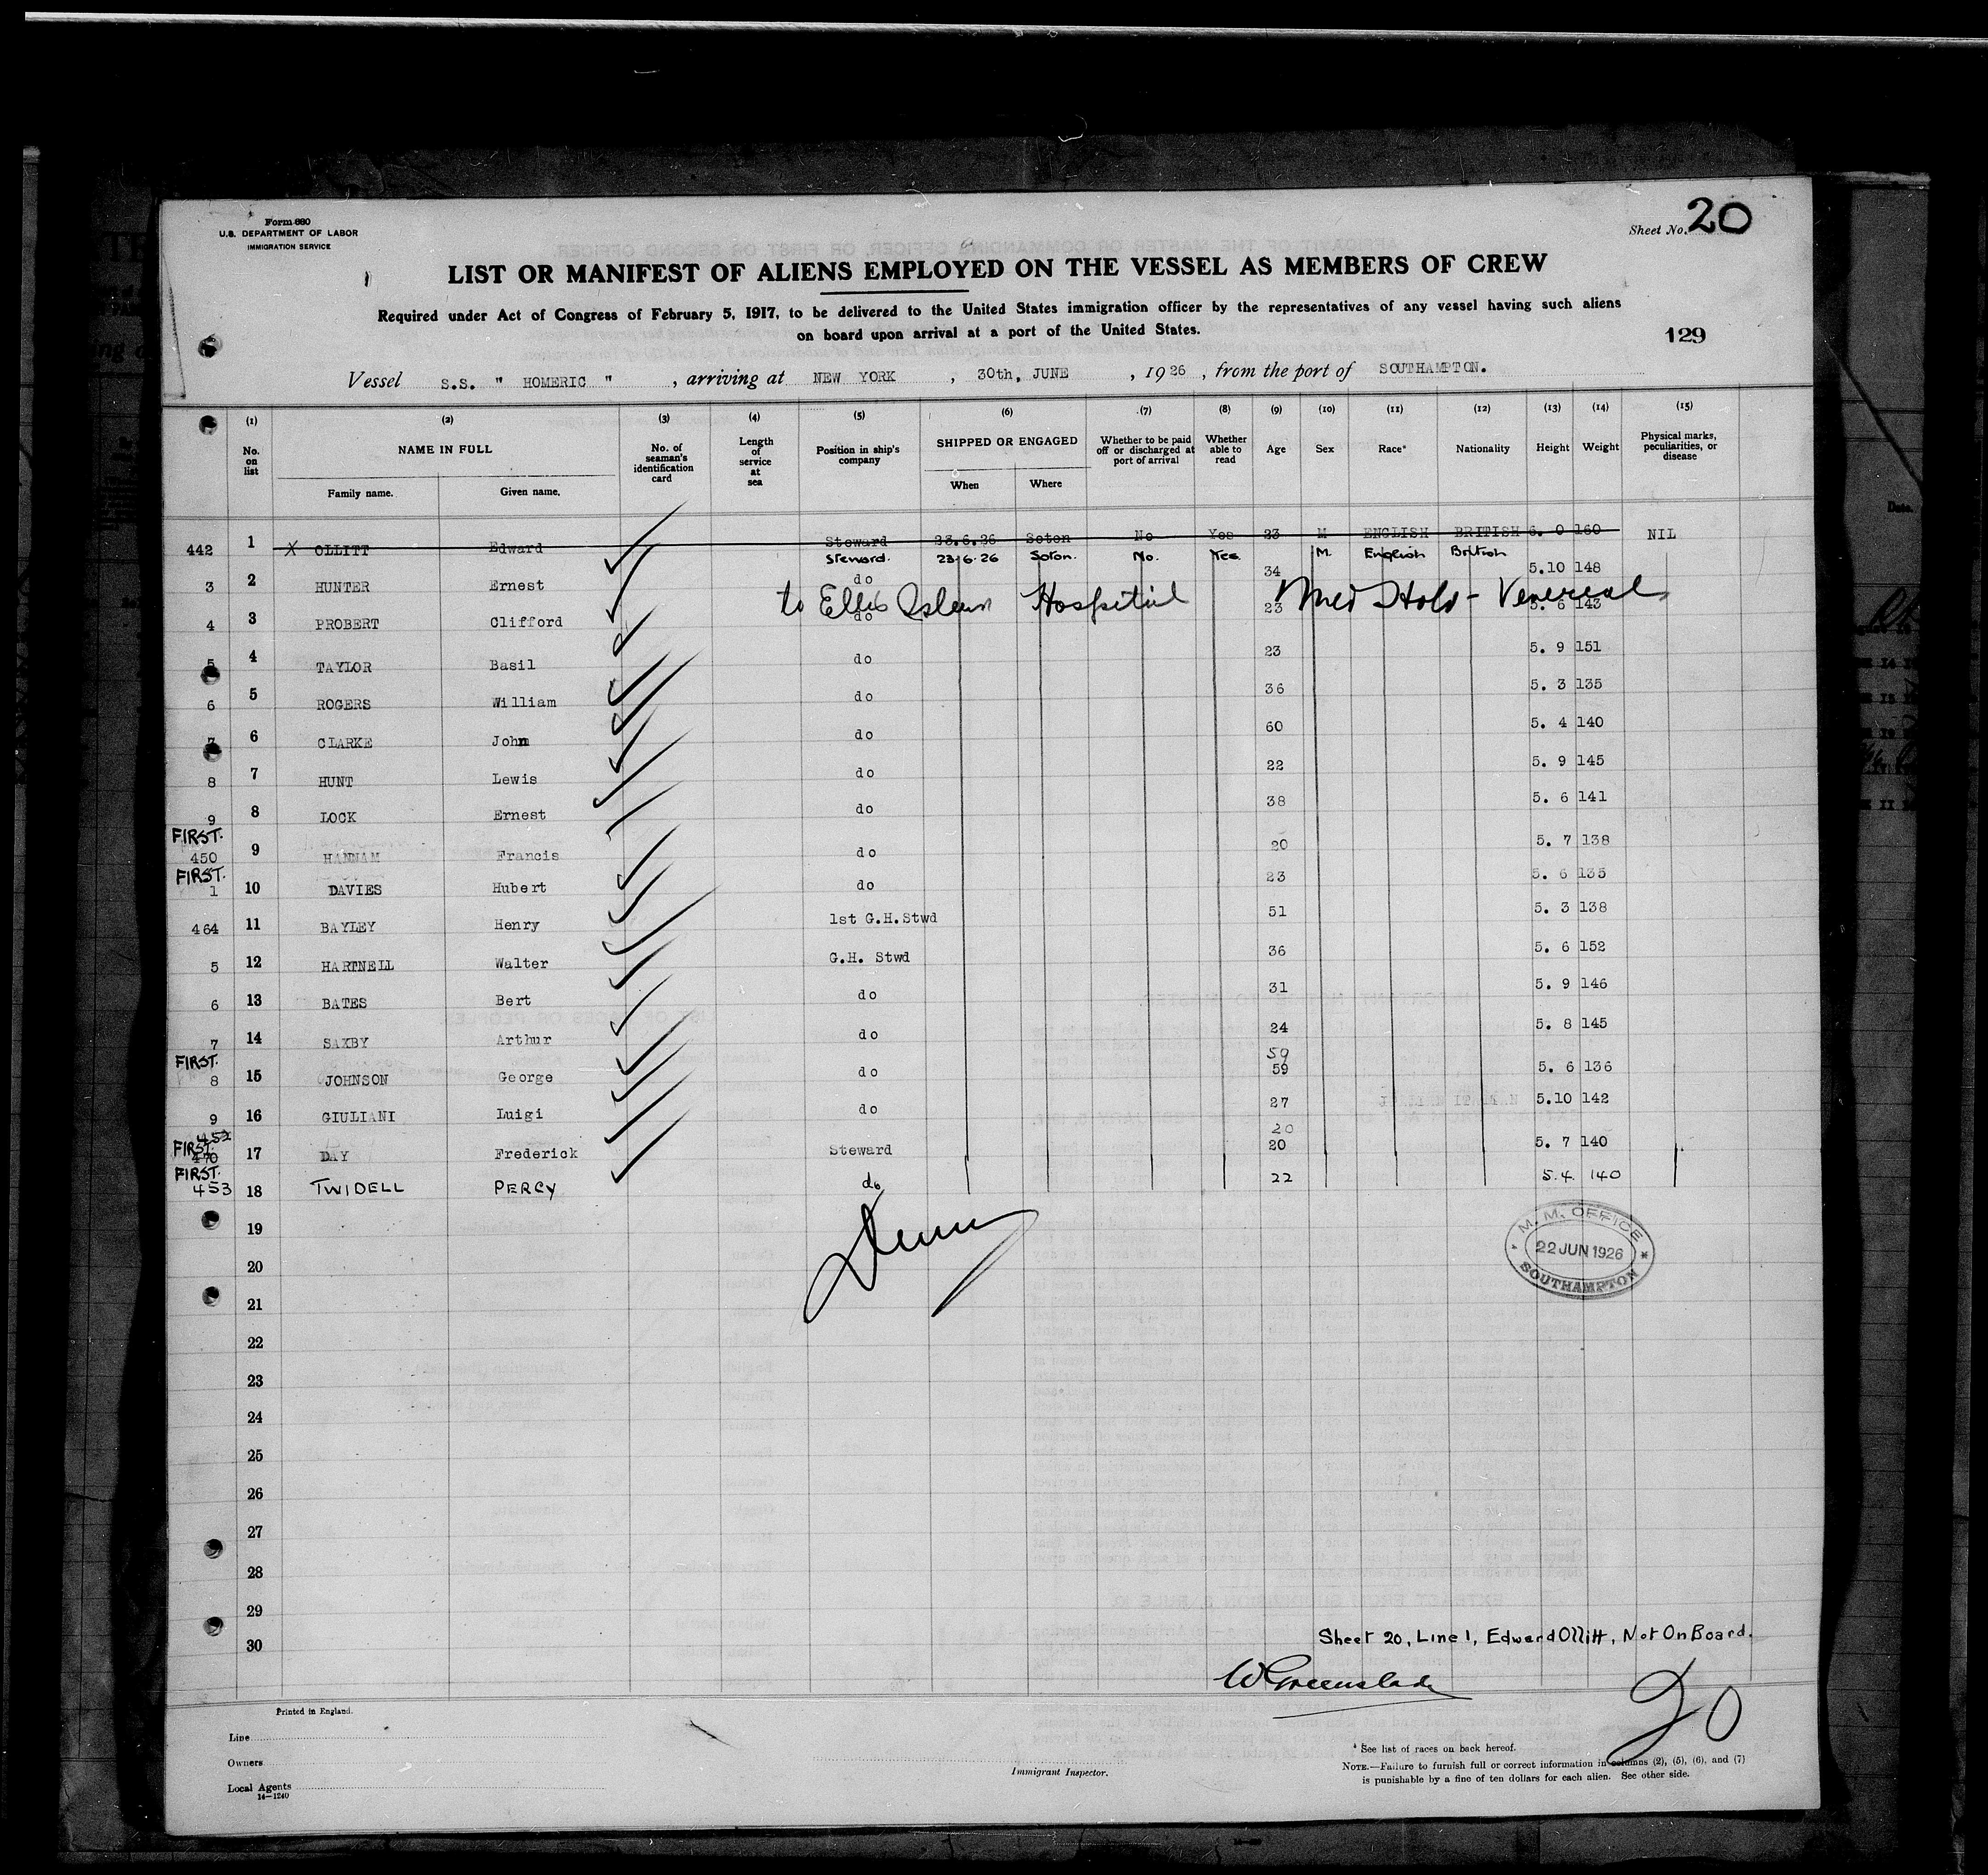 Form 680
U.S. DEPARTMENT OF LABOR
IMMIGRATION SERVICE
Sheet No. 20
LIST OR MANIFEST OF ALIENS EMPLOYED ON THE VESSEL AS MEMBERS OF CREW
Required under Act of Congress of February 5, 1917, to be delivered to the United States immigration officer by the representatives of any vessel having such aliens
on board upon arrival at a port of the United States.
129
Vessel S.S. " HOMERIC " , arriving at NEW YORK , 30th, JUNE , 1926 , from the port of SOUTHAMPTON.
(1) (2) (3) (4) (5) (6) (7) (8) (9) (10) (11) (12) (13) (14) (15)
No. on list NAME IN FULL Family name. Given name. No. of seaman's identification card Length of service at sea Position in ship's company SHIPPED OR ENGAGED When Where Whether to be paid off or discharged at port of arrival Whether able to read Age Sex Race* Nationality Height Weight Physical marks, peculiarities, or disease
442 1 X OLLITT Edward Steward 23.6.26 Soton No Yes 23 M ENGLISH BRITISH 6. 0 160 NIL
Steward. 23.6.26 Soton. No. Yes M. English British
3 2 HUNTER Ernest do 34 5.10 148
to Ellis Island Hospital Med Hold - Venereal
4 3 PROBERT Clifford do 23 5. 6 143
5 4 TAYLOR Basil do 23 5. 9 151
6 5 ROGERS William do 36 5. 3 135
7 6 CLARKE John do 60 5. 4 140
8 7 HUNT Lewis do 22 5. 9 145
9 8 LOCK Ernest do 38 5. 6 141
FIRST.
450 9 HANNAM Francis do 20 5. 7 138
FIRST.
1 10 DAVIES Hubert do 23 5. 6 135
464 11 BAYLEY Henry 1st G.H.Stwd 51 5. 3 138
5 12 HARTNELL Walter G.H. Stwd 36 5. 6 152
6 13 BATES Bert do 31 5. 9 146
7 14 SAXBY Arthur do 24 5. 8 145
FIRST. 59
8 15 JOHNSON George do 59 5. 6 136
9 16 GIULIANI Luigi do 27 5.10 142
452 20
FIRST. 470 17 DAY Frederick Steward 20 5. 7 140
FIRST.
453 18 TWIDELL PERCY do 22 5.4. 140
19
20
21
M. M. OFFICE
22 JUN 1926
SOUTHAMPTON
22
23
24
25
26
27
28
29
30
Sheet 20, Line 1, Edward Ollitt, Not On Board.
W Greenslade
20
Printed in England.
Line
Owners
Local Agents
14—1240
Immigrant Inspector.
* See list of races on back hereof.
NOTE.—Failure to furnish full or correct information in columns (2), (5), (6), and (7)
is punishable by a fine of ten dollars for each alien. See other side.